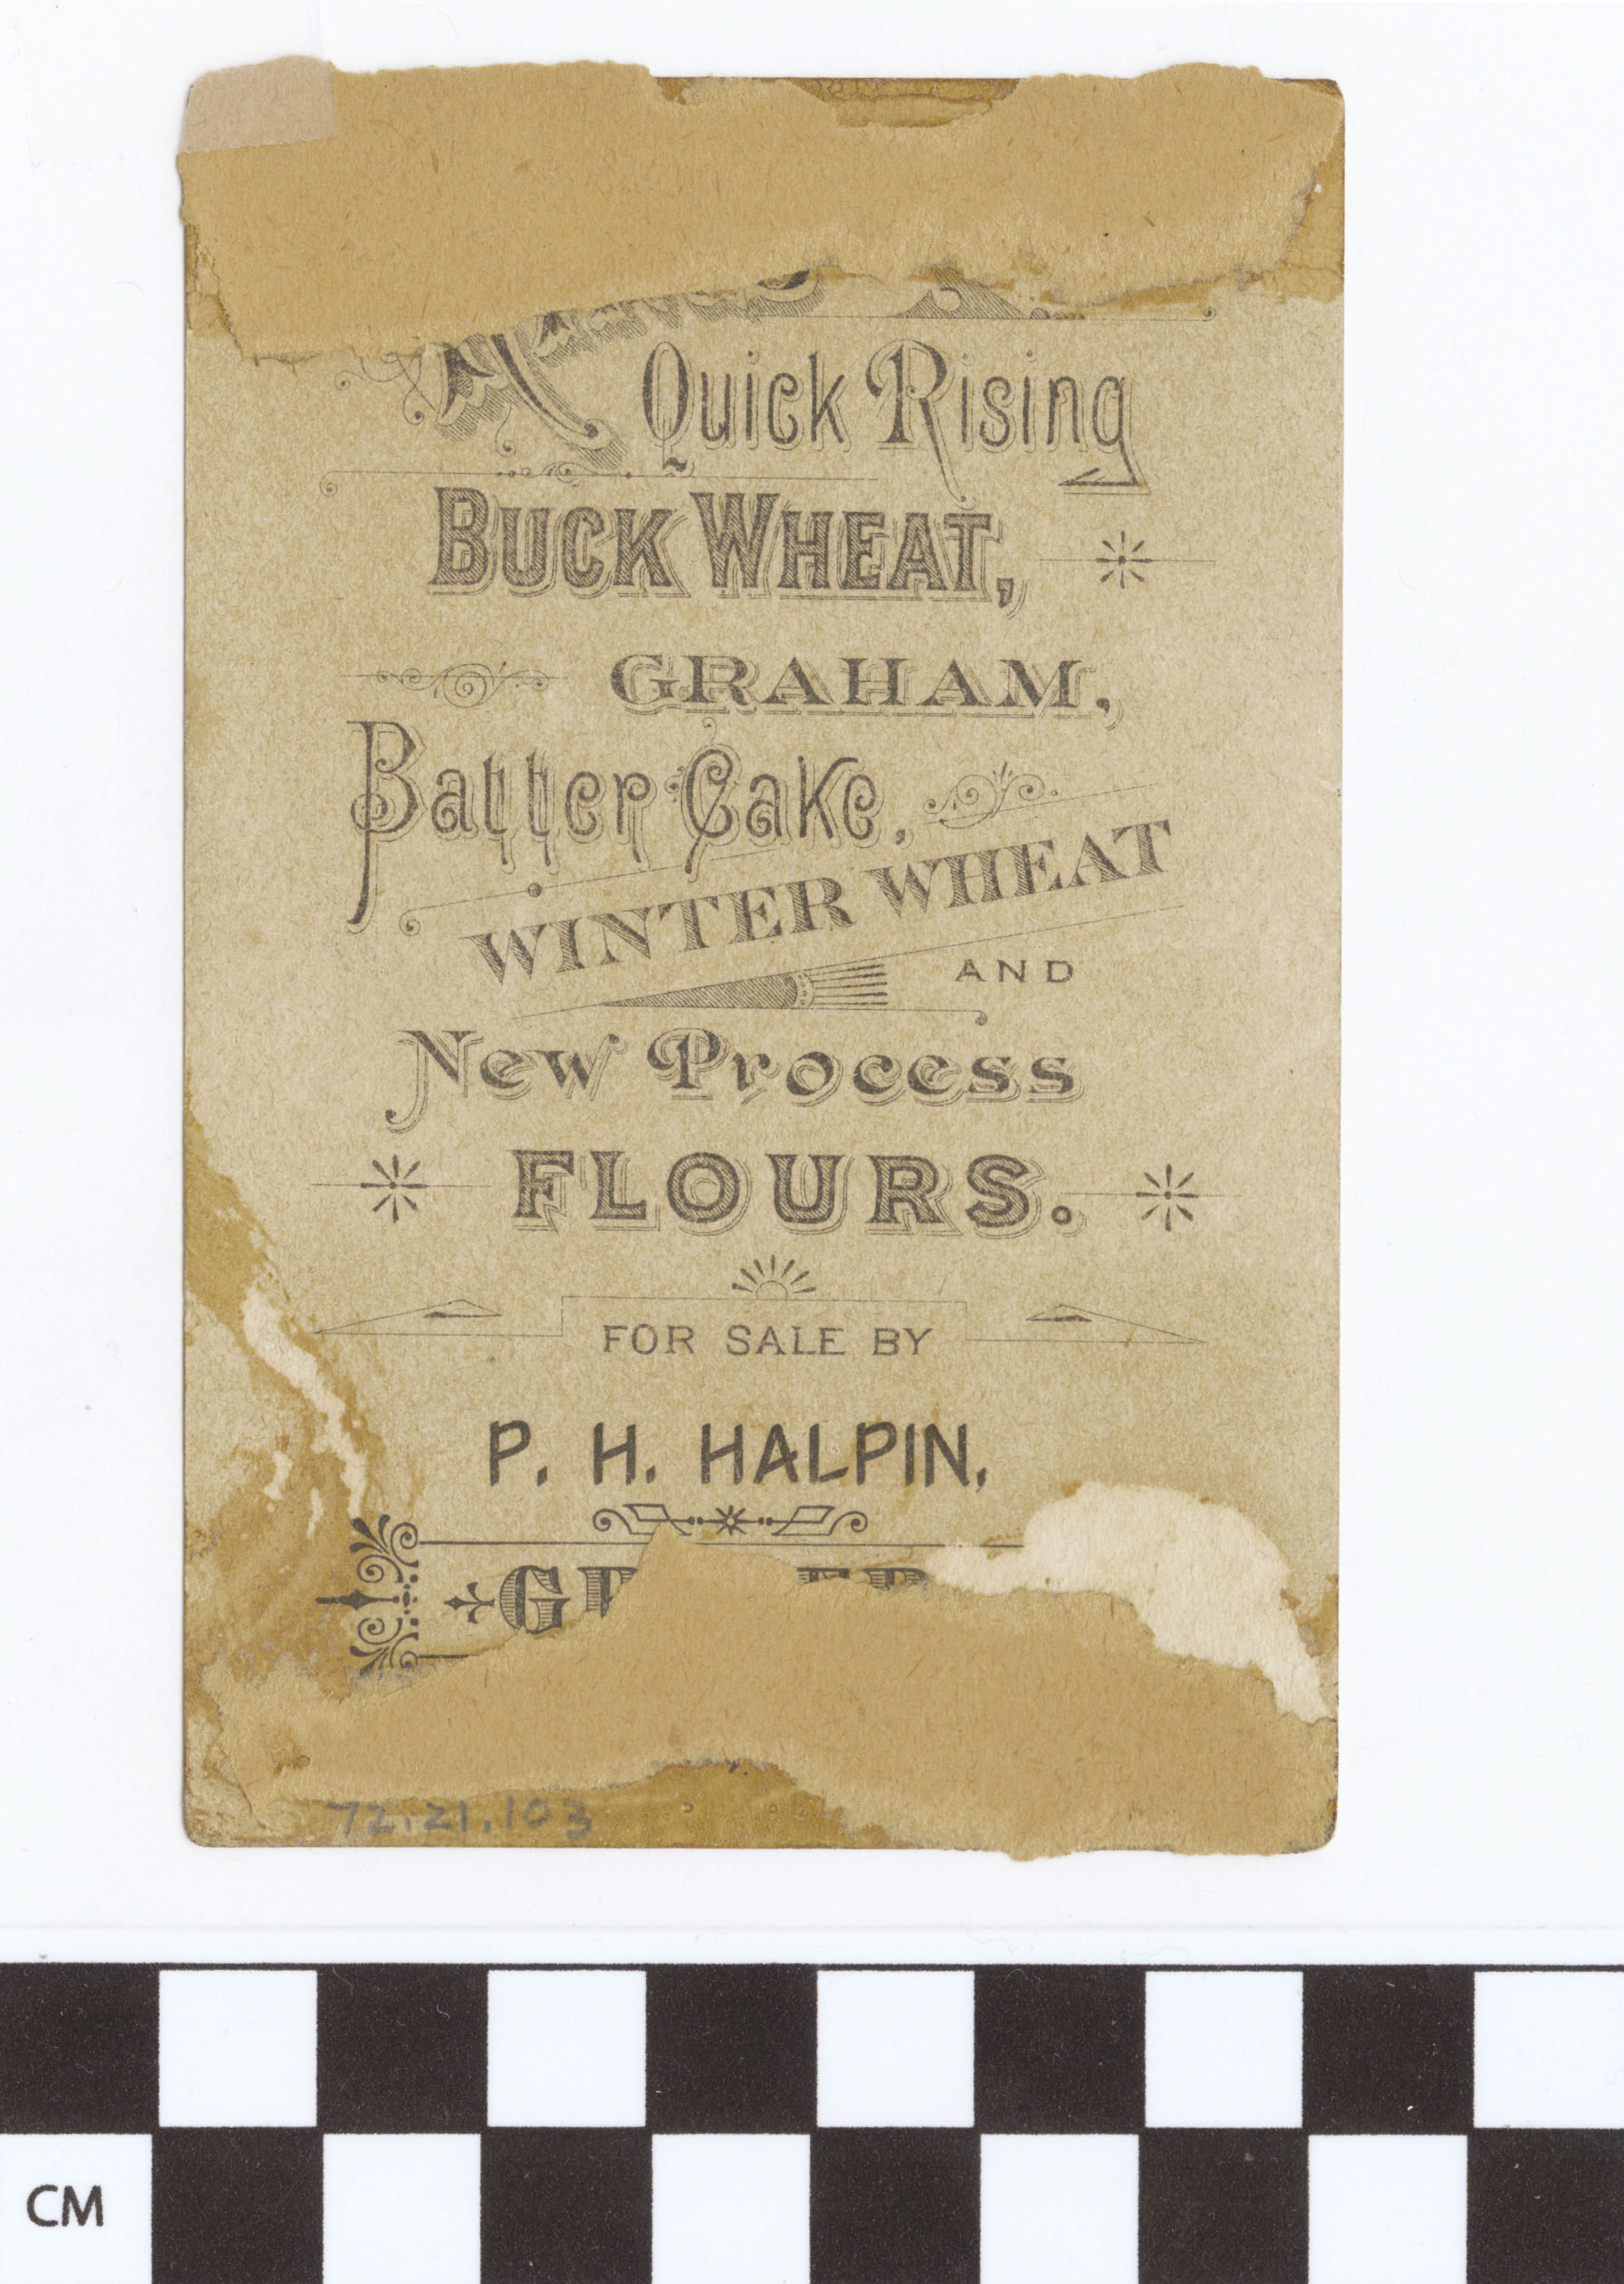 Quick Rising
BUCK WHEAT,
GRAHAM,
Batter Cake,
WINTER WHEAT
AND
New Process
FLOURS.
FOR SALE BY
P. H. HALPIN,
72.21.103
CM